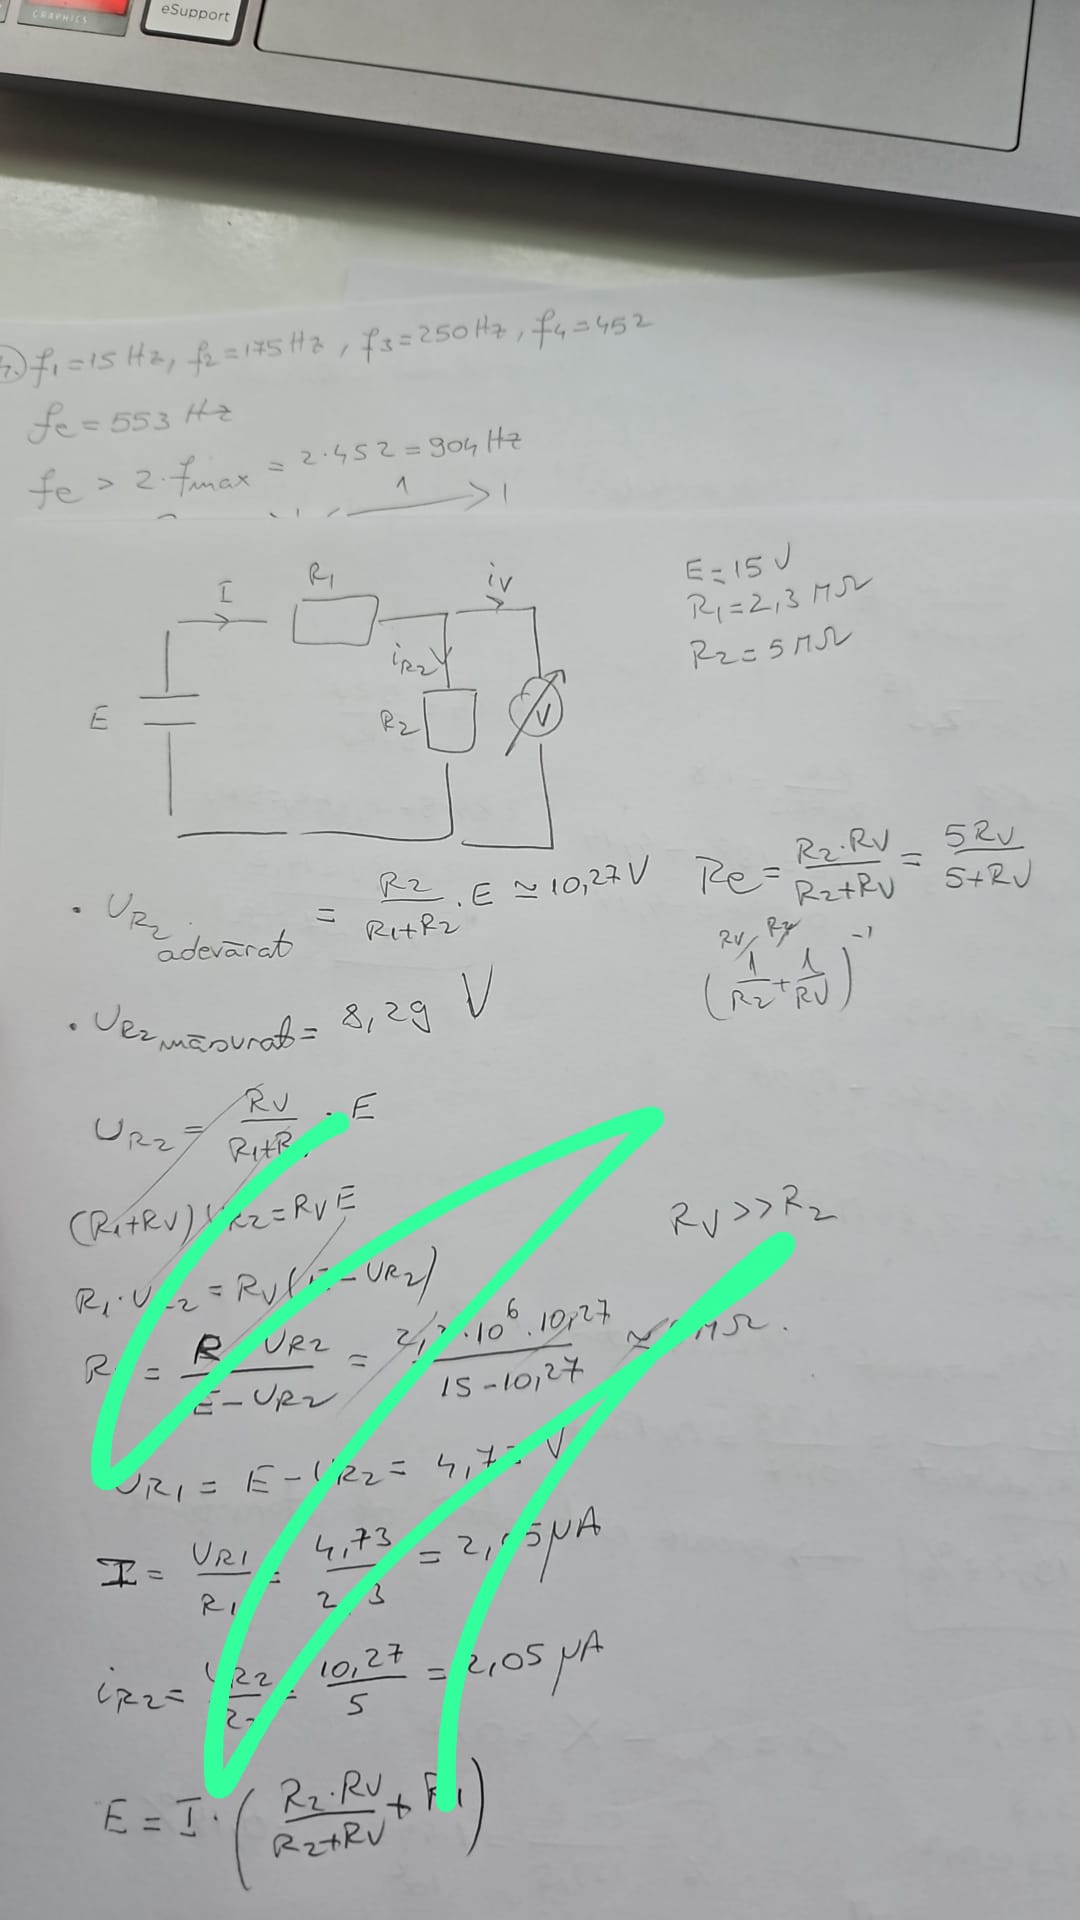 GRAPHICS
eSupport
f1=15Hz, f2=175Hz, f3=250Hz, f4=452
fe=553 Hz
fe > 2·fmax = 2·452=904Hz
I
R1
iV
iR2
E
R2
V
E=15V
R1=2,3 MΩ
R2=5MΩ
· UR2 adevărat = R2/(R1+R2) · E ≃ 10,27V
Re = R2·RV/(R2+RV) = 5RV/(5+RV)
(1/R2 + 1/RV)^-1
· UR2 măsurat = 8,29 V
UR2 = RV/(R1+R · E
(R1+RV) R2=RVE
RV>>R2
R1·U 2 = RV( -UR2)
R = R UR2/(E-UR2) = 2, ·10^6·10,27/(15-10,27) ≃ MΩ.
UR1 = E-UR2 = 4,7 V
I = UR1/R1 = 4,73/2,3 = 2, 5μA
iR2 = R2 = 10,27/5 = 2,05 μA
E = I·(R2·RV/(R2+RV) + R1)